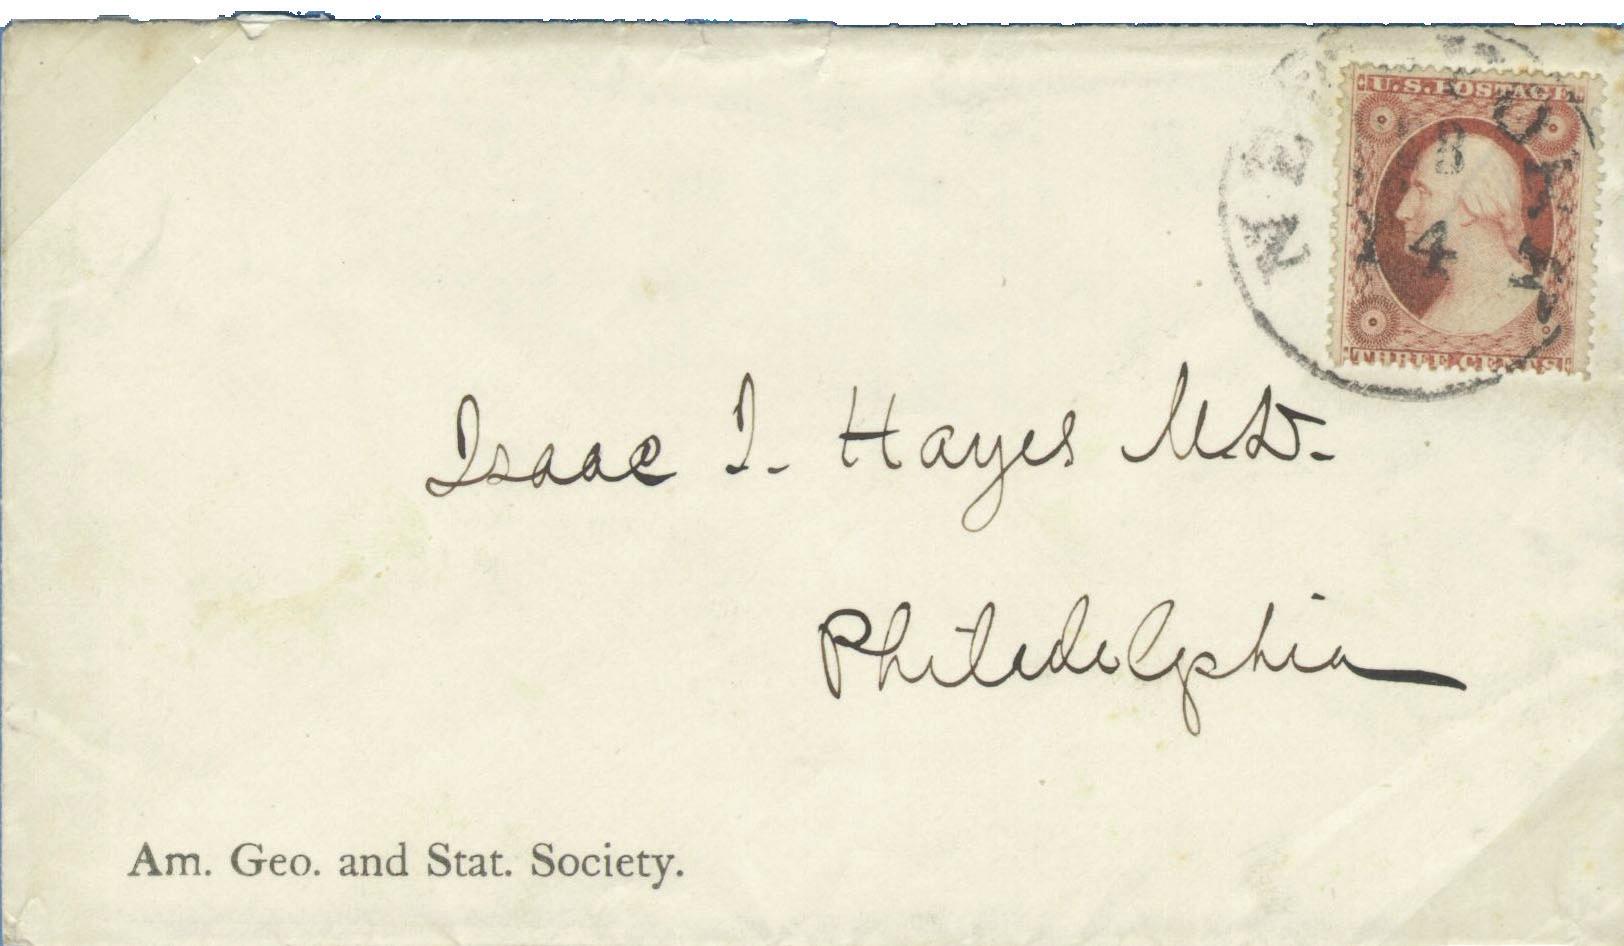 NEW YORK
U.S. POSTAGE
8
4
THREE CENTS
Isaac I. Hayes M.D.
Philadelphia
Am. Geo. and Stat. Society.